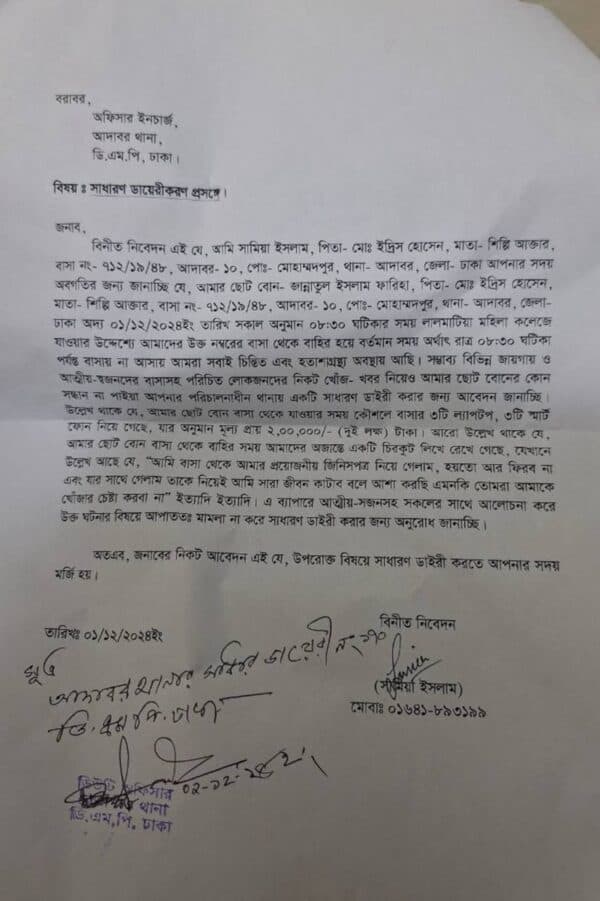 বরাবর,
অফিসার ইনচার্জ,
আদাবর থানা,
ডি.এম.পি, ঢাকা।
বিষয় ঃ সাধারণ ডায়েরীকরণ প্রসঙ্গে।
জনাব,
বিনীত নিবেদন এই যে, আমি সামিয়া ইসলাম, পিতা- মোঃ ইদ্রিস হোসেন, মাতা- শিল্পি আক্তার,
বাসা নং- ৭১২/১৯/৪৮, আদাবর- ১০, পোঃ- মোহাম্মদপুর, থানা- আদাবর, জেলা- ঢাকা আপনার সদয়
অবগতির জন্য জানাচ্ছি যে, আমার ছোট বোন- জান্নাতুল ইসলাম ফারিহা, পিতা- মোঃ ইদ্রিস হোসেন,
মাতা- শিল্পি আক্তার, বাসা নং- ৭১২/১৯/৪৮, আদাবর- ১০, পোঃ- মোহাম্মদপুর, থানা- আদাবর, জেলা-
ঢাকা অদ্য ০১/১২/২০২৪ইং তারিখ সকাল অনুমান ০৮:৩০ ঘটিকার সময় লালমাটিয়া মহিলা কলেজে
যাওয়ার উদ্দেশ্যে আমাদের উক্ত নম্বরের বাসা থেকে বাহির হয়ে বর্তমান সময় অর্থাৎ রাত্র ০৮:৩০ ঘটিকা
পর্যন্ত বাসায় না আসায় আমরা সবাই চিন্তিত এবং হতাশাগ্রস্থ্য অবস্থায় আছি। সম্ভাব্য বিভিন্ন জায়গায় ও
আত্মীয়-স্বজনদের বাসাসহ পরিচিত লোকজনদের নিকট খোঁজ- খবর নিয়েও আমার ছোট বোনের কোন
সন্ধান না পাইয়া আপনার পরিচালনাধীন থানায় একটি সাধারণ ডাইরী করার জন্য আবেদন জানাচ্ছি।
উল্লেখ থাকে যে, আমার ছোট বোন বাসা থেকে যাওয়ার সময় কৌশলে বাসার ৩টি ল্যাপটপ, ৩টি স্মার্ট
ফোন নিয়ে গেছে, যার অনুমান মূল্য প্রায় ২,০০,০০০/- (দুই লক্ষ) টাকা। আরো উল্লেখ থাকে যে,
আমার ছোট বোন বাসা থেকে বাহির সময় আমাদের অজান্তে একটি চিরকুট লিখে রেখে গেছে, যেখানে
উল্লেখ আছে যে, “আমি বাসা থেকে আমার প্রয়োজনীয় জিনিসপত্র নিয়ে গেলাম, হয়তো আর ফিরব না
এবং যার সাথে গেলাম তাকে নিয়েই আমি সারা জীবন কাটাব বলে আশা করছি এমনকি তোমরা আমাকে
খোঁজার চেষ্টা করবা না” ইত্যাদি ইত্যাদি। এ ব্যাপারে আত্মীয়-সজনসহ সকলের সাথে আলোচনা করে
উক্ত ঘটনার বিষয়ে আপাততঃ মামলা না করে সাধারণ ডাইরী করার জন্য অনুরোধ জানাচ্ছি।
অতএব, জনাবের নিকট আবেদন এই যে, উপরোক্ত বিষয়ে সাধারণ ডাইরী করতে আপনার সদয়
মর্জি হয়।
বিনীত নিবেদন
তারিখঃ ০১/১২/২০২৪ইং
(সামিয়া ইসলাম)
মোবাঃ ০১৬৪১-৮৯৩১৯৯
আদাবর থানার ডায়েরী নং
ডি. এম. পি. ঢাকা
ডিউটি অফিসার
থানা
ডি.এম.পি. ঢাকা